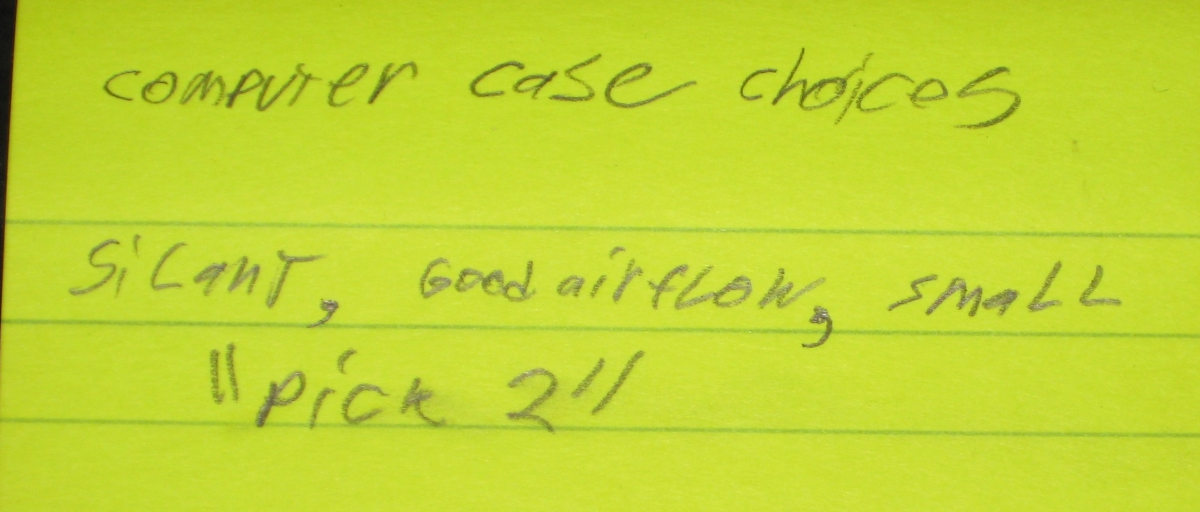 computer case choices
Silant, Good airflow, small
"pick 2"